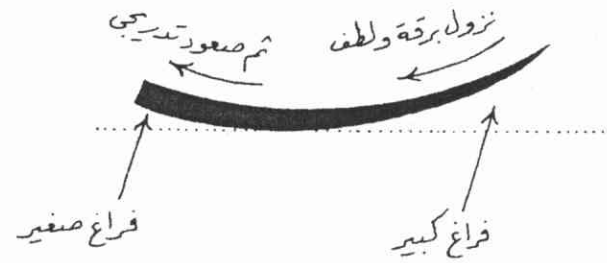 نزول برقة ولطف
ثم صعود تدريجي
فراغ كبير
فراغ صغير